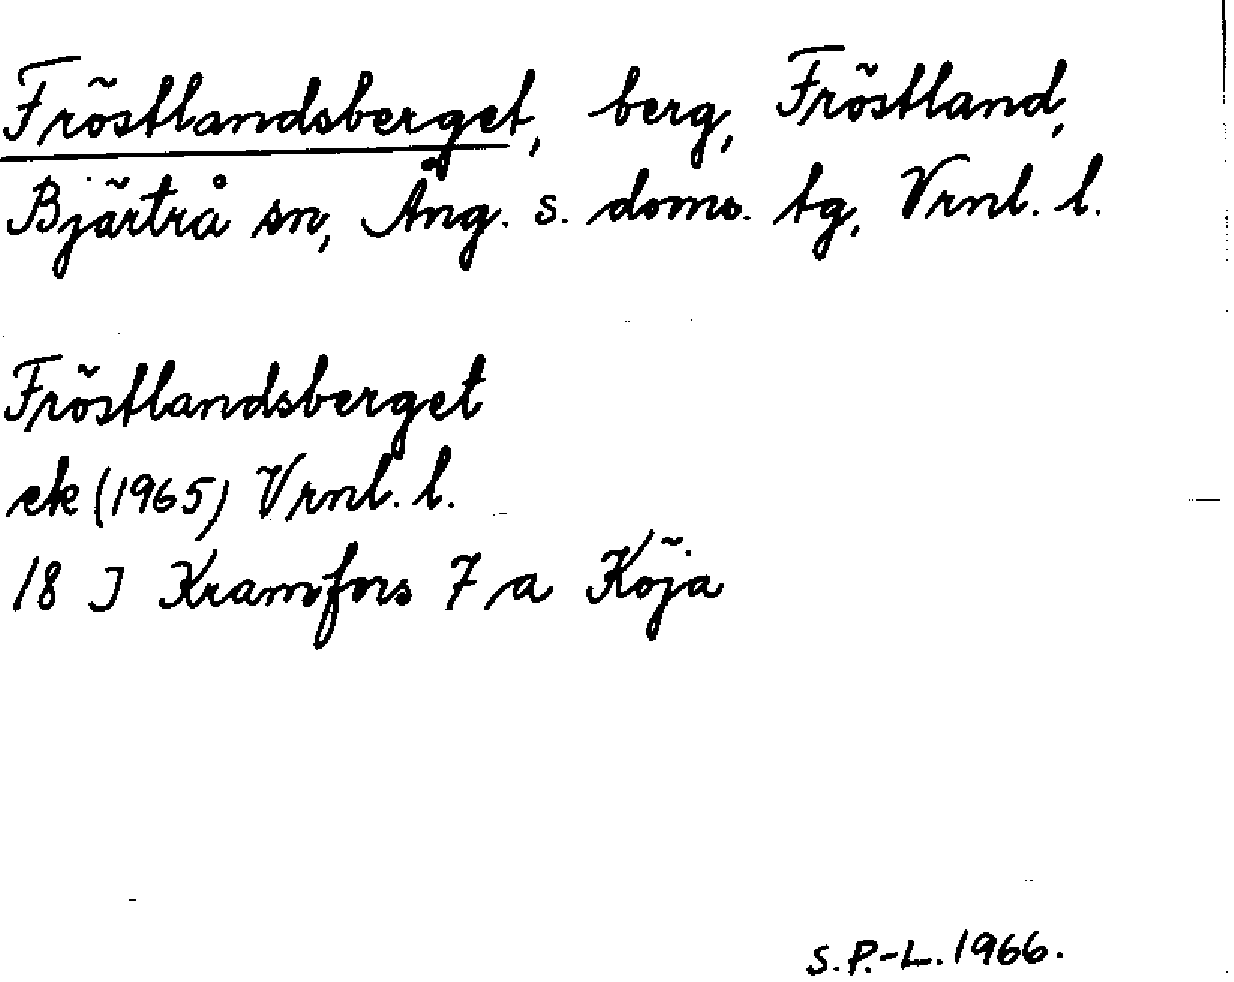 Fröstlandsberget, berg, Fröstland,
Bjärtrå sn, Ång. s. doms. tg, Vrnl. l.
Fröstlandsberget
ek (1965) Vrnl. l.
18 J Kramfors 7 a Köja
S.P.-L. 1966.